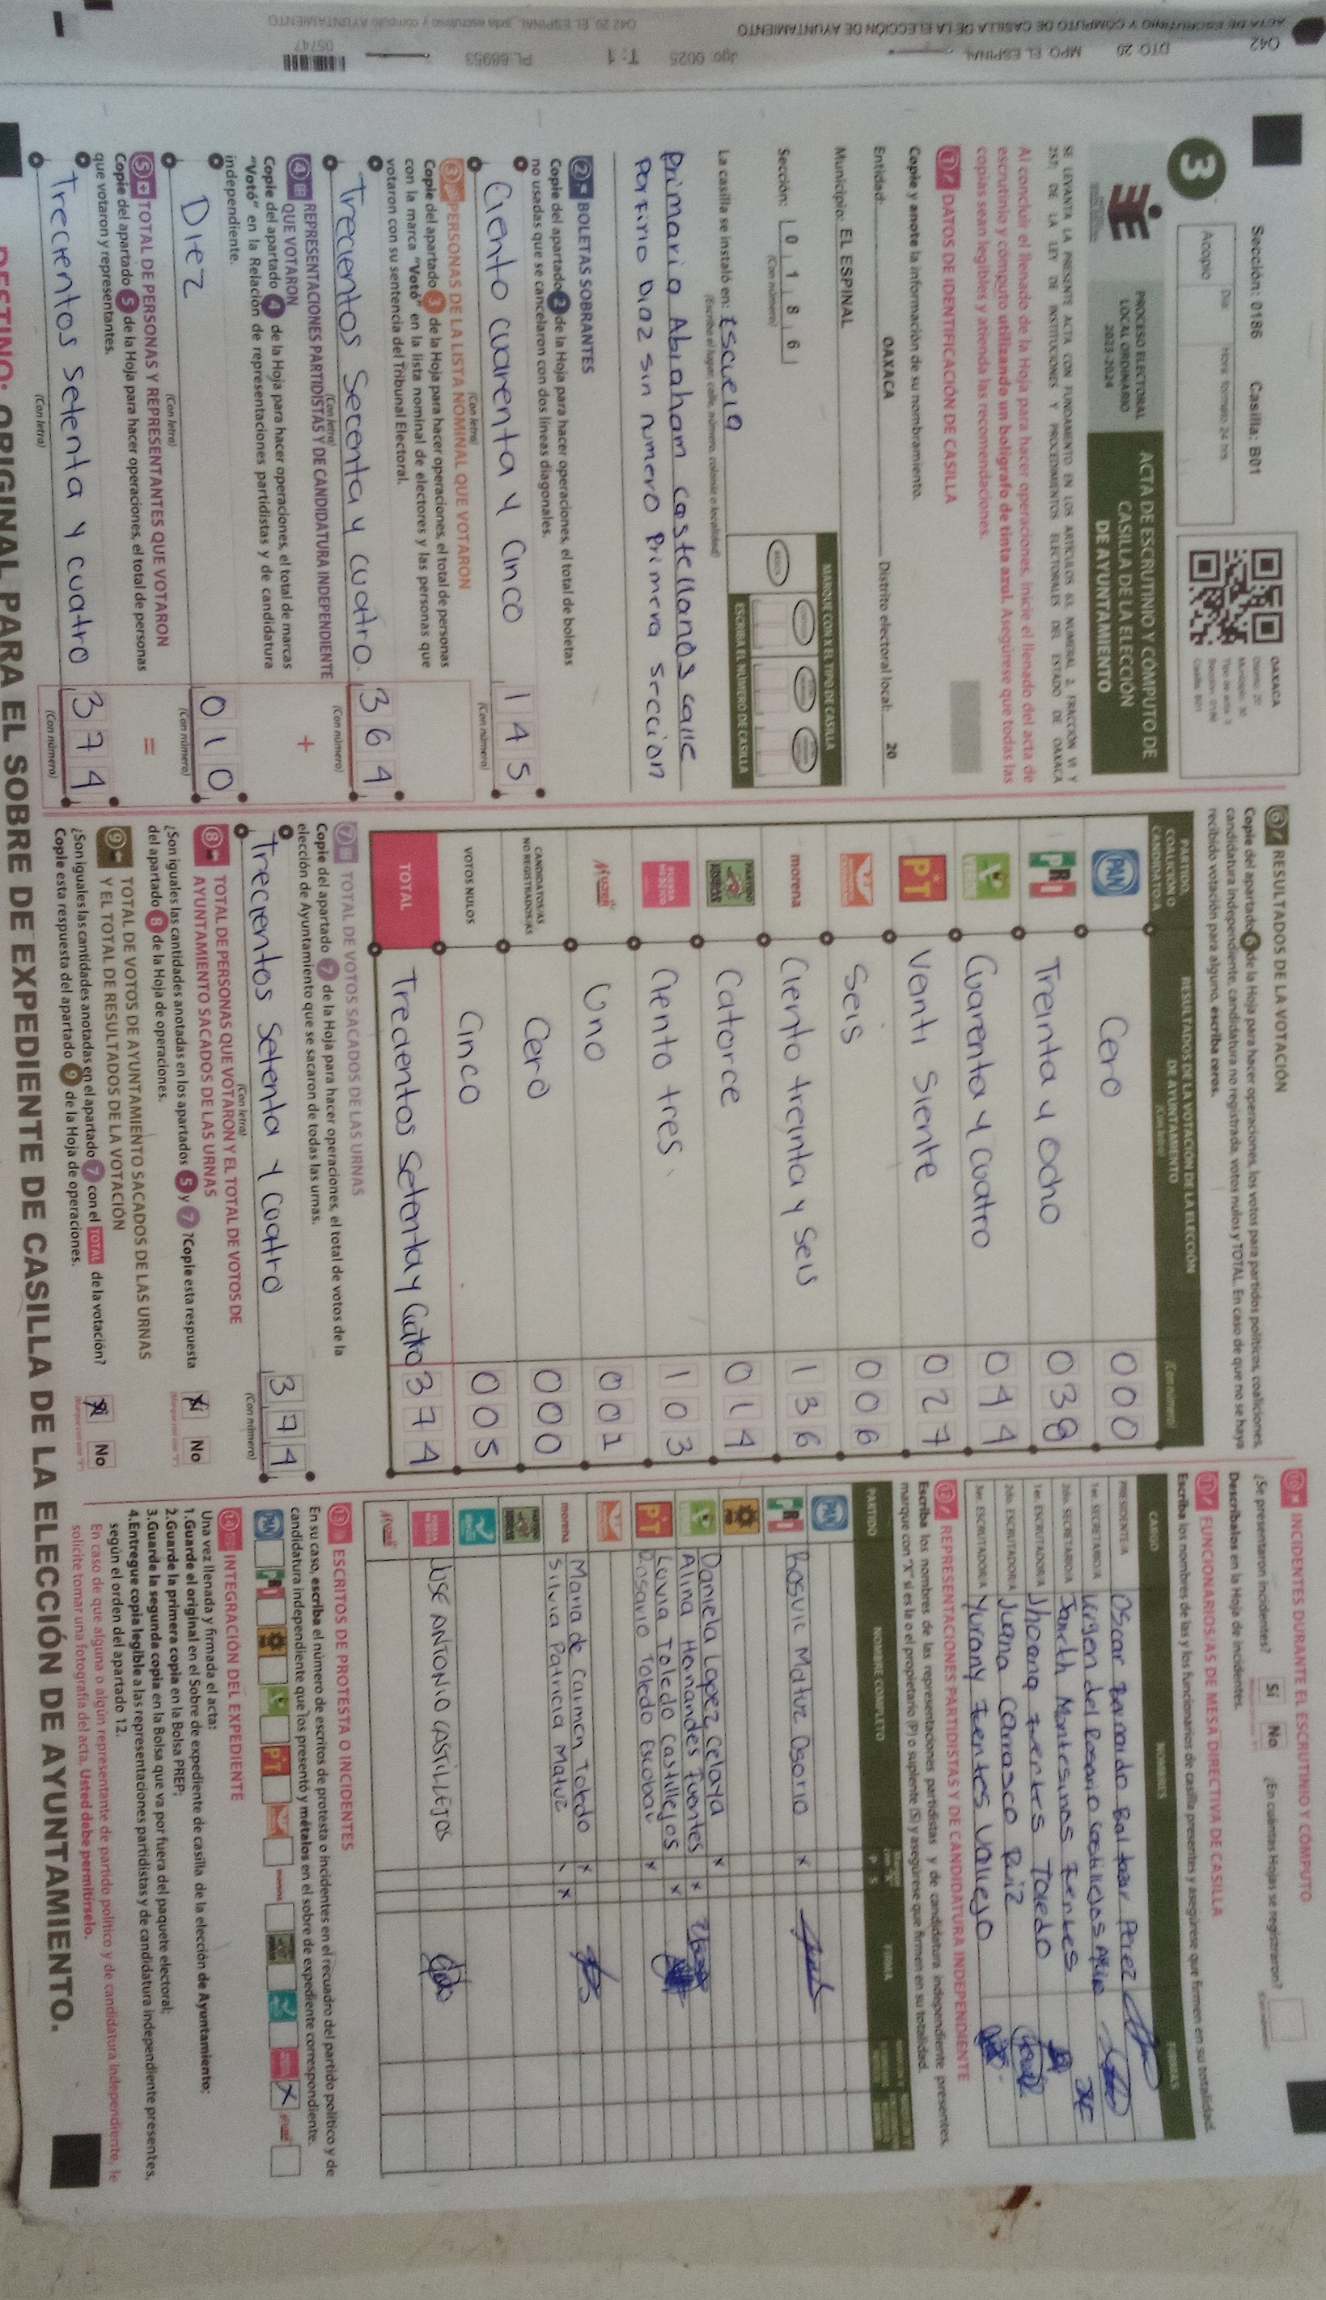 Sección: 0186 Casilla: B01
3
Acopio
Día
Hora formato 24 hrs
OAXACA
PROCESO ELECTORAL
LOCAL ORDINARIO
2023-2024
ACTA DE ESCRUTINIO Y CÓMPUTO DE
CASILLA DE LA ELECCIÓN
DE AYUNTAMIENTO
SE LEVANTA LA PRESENTE ACTA CON FUNDAMENTO EN LOS ARTÍCULOS 63, NUMERAL 2, FRACCIÓN VI Y
257; DE LA LEY DE INSTITUCIONES Y PROCEDIMIENTOS ELECTORALES DEL ESTADO DE OAXACA
Al concluir el llenado de la Hoja para hacer operaciones, inicie el llenado del acta de
escrutinio y cómputo utilizando un bolígrafo de tinta azul. Asegúrese que todas las
copias sean legibles y atienda las recomendaciones.
1 DATOS DE IDENTIFICACIÓN DE CASILLA
Copie y anote la información de su nombramiento.
Entidad: OAXACA Distrito electoral local: 20
Municipio: EL ESPINAL
Sección: 0 1 8 6
(Con número)
MARQUE CON X EL TIPO DE CASILLA
ESCRIBA EL NÚMERO DE CASILLA
La casilla se instaló en: Escuela
(Escriba el lugar: calle, número, colonia o localidad)
Primaria Abraham Castellanos calle
Porfirio Diaz sin numero Primera Seccion
2 BOLETAS SOBRANTES
Copie del apartado 2 de la Hoja para hacer operaciones, el total de boletas
no usadas que se cancelaron con dos líneas diagonales.
Ciento cuarenta y Cinco 1 4 5
(Con letra) (Con número)
3 PERSONAS DE LA LISTA NOMINAL QUE VOTARON
Copie del apartado 3 de la Hoja para hacer operaciones, el total de personas
con la marca "Votó" en la lista nominal de electores y las personas que
votaron con su sentencia del Tribunal Electoral.
Trecientos Secenta y cuatro. 3 6 4
(Con letra) (Con número)
4 REPRESENTACIONES PARTIDISTAS Y DE CANDIDATURA INDEPENDIENTE
QUE VOTARON
Copie del apartado 4 de la Hoja para hacer operaciones, el total de marcas
"Votó" en la Relación de representaciones partidistas y de candidatura
independiente.
+
Diez 0 1 0
(Con letra) (Con número)
5 TOTAL DE PERSONAS Y REPRESENTANTES QUE VOTARON
Copie del apartado 5 de la Hoja para hacer operaciones, el total de personas
que votaron y representantes.
=
Trecientos setenta y cuatro 3 7 4
(Con letra) (Con número)
6 RESULTADOS DE LA VOTACIÓN
Copie del apartado 6 de la Hoja para hacer operaciones, los votos para partidos políticos, coaliciones,
candidatura independiente, candidatura no registrada, votos nulos y TOTAL. En caso de que no se haya
recibido votación para alguno, escriba ceros.
PARTIDO, COALICIÓN O CANDIDATO/A
RESULTADOS DE LA VOTACIÓN DE LA ELECCIÓN DE AYUNTAMIENTO (Con letra) (Con número)
PAN Cero 0 0 0
PRI Treinta y Ocho 0 3 8
VERDE Cuarenta y Cuatro 0 4 4
PT Venti siente 0 2 7
Seis 0 0 6
morena Ciento treinta y Seis 1 3 6
Catorce 0 1 4
Ciento tres. 1 0 3
Mujer Uno 0 0 1
CANDIDATOS/AS NO REGISTRADOS/AS Cero 0 0 0
VOTOS NULOS Cinco 0 0 5
TOTAL Trecientos Setenta y Cuatro 3 7 4
7 TOTAL DE VOTOS SACADOS DE LAS URNAS
Copie del apartado 7 de la Hoja para hacer operaciones, el total de votos de la
elección de Ayuntamiento que se sacaron de todas las urnas.
Trecientos Setenta y Cuatro 3 7 4
(Con letra) (Con número)
8 TOTAL DE PERSONAS QUE VOTARON Y EL TOTAL DE VOTOS DE
AYUNTAMIENTO SACADOS DE LAS URNAS
¿Son iguales las cantidades anotadas en los apartados 5 y 7 ? Copie esta respuesta
del apartado 8 de la Hoja de operaciones.
Sí No
9 TOTAL DE VOTOS DE AYUNTAMIENTO SACADOS DE LAS URNAS
Y EL TOTAL DE RESULTADOS DE LA VOTACIÓN
¿Son iguales las cantidades anotadas en el apartado 7 con el TOTAL de la votación?
Copie esta respuesta del apartado 9 de la Hoja de operaciones.
Sí No
10 INCIDENTES DURANTE EL ESCRUTINIO Y CÓMPUTO
¿Se presentaron incidentes? Sí No ¿En cuántas Hojas se registraron?
Descríbalos en la Hoja de incidentes.
11 FUNCIONARIOS/AS DE MESA DIRECTIVA DE CASILLA
Escriba los nombres de las y los funcionarios de casilla presentes y asegúrese que firmen en su totalidad.
CARGO NOMBRES FIRMAS
PRESIDENTE/A Oscar Bernardo Baltazar Perez
1er. SECRETARIO/A Virgen del Rosario Castillejos
2do. SECRETARIO/A Janeth Montesinos Fentes
1er. ESCRUTADOR/A Jhoana Fuentes Toledo
2do. ESCRUTADOR/A Juana Carrasco Ruiz
3er. ESCRUTADOR/A Yurany Fuentes Vallejo
12 REPRESENTACIONES PARTIDISTAS Y DE CANDIDATURA INDEPENDIENTE
Escriba los nombres de las representaciones partidistas y de candidatura independiente presentes,
marque con "X" si es la o el propietario (P) o suplente (S) y asegúrese que firmen en su totalidad.
PARTIDO NOMBRE COMPLETO P S FIRMA
PAN
PRI Rosvic Matuz Osorio x
Daniela Lopez Celaya x
Alina Hernandes Fuentes x
Luvia Toledo Castillejos x
PT Rosario Toledo Escobar x
Maria de Carmen Toledo x
morena Silvia Patricia Matuz x
JOSE ANTONIO CASTILLEJOS
Mujer
13 ESCRITOS DE PROTESTA O INCIDENTES
En su caso, escriba el número de escritos de protesta o incidentes en el recuadro del partido político y de
candidatura independiente que los presentó y métalos en el sobre de expediente correspondiente.
X
14 INTEGRACIÓN DEL EXPEDIENTE
Una vez llenada y firmada el acta:
1.Guarde el original en el Sobre de expediente de casilla de la elección de Ayuntamiento;
2.Guarde la primera copia en la Bolsa PREP;
3.Guarde la segunda copia en la Bolsa que va por fuera del paquete electoral;
4.Entregue copia legible a las representaciones partidistas y de candidatura independiente presentes,
según el orden del apartado 12.
En caso de que alguna o algún representante de partido político y de candidatura independiente, le
solicite tomar una fotografía del acta, Usted debe permitírselo.
DESTINO: ORIGINAL PARA EL SOBRE DE EXPEDIENTE DE CASILLA DE LA ELECCIÓN DE AYUNTAMIENTO.
ACTA DE ESCRUTINIO Y CÓMPUTO DE CASILLA DE LA ELECCIÓN DE AYUNTAMIENTO
042 DTO: 20 MPO: EL ESPINAL
T: 1
05747